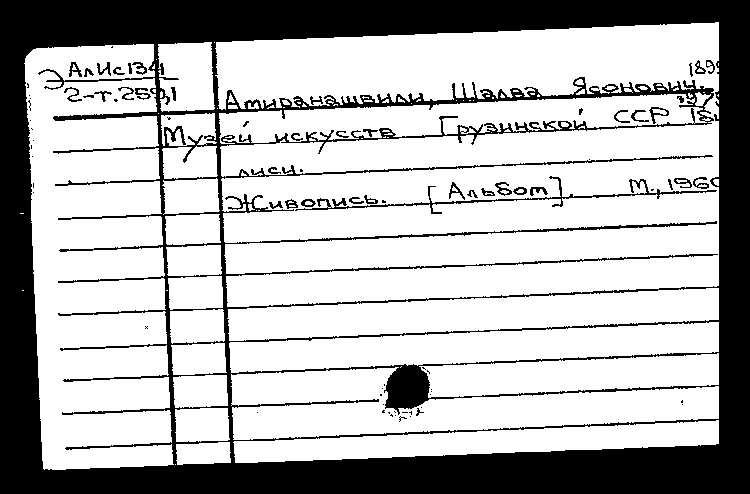 Э АлИс134
2-т.259,1
Амиранашвили, Шалва Ясонович. 1899
Музей искусств Грузинской ССР
лиси.
Живопись. [Альбом]. М., 1960